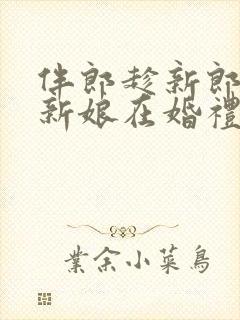 伴郎趁新郎
新娘在婚禮
業余小菜鳥